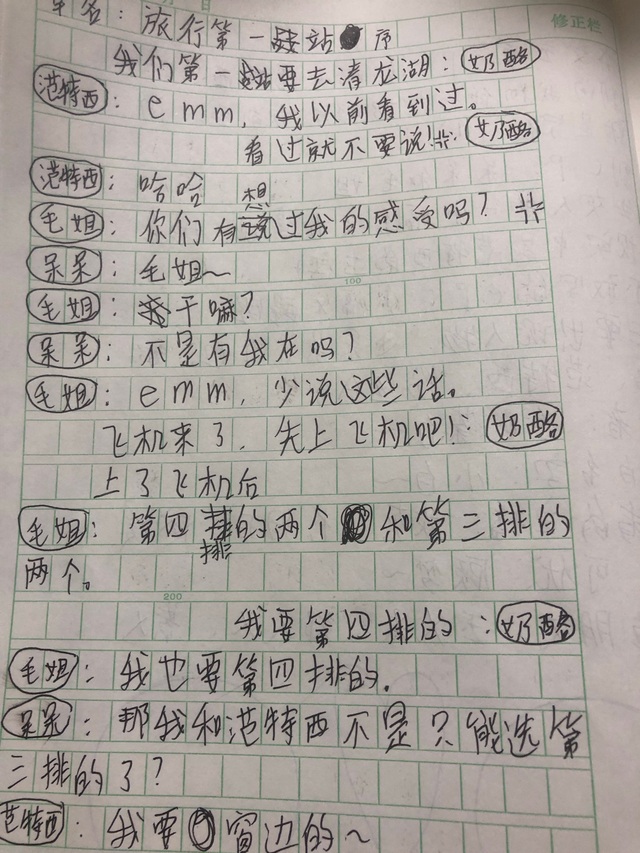 章名：旅行第一站 序
修正栏
我们第一站要去清龙湖：奶酪
范特西：emm，我以前看到过。
看过就不要说！奶酪
范特西：哈哈
毛姐：你们有想过我的感受吗？
呆呆：毛姐~
毛姐：干嘛？
呆呆：不是有我在吗？
毛姐：emm，少说这些话。
飞机来了，先上飞机吧！：奶酪
上了飞机后
100
毛姐：第四排的两个和第三排的
两个。
200
我要第四排的：奶酪
毛姐：我也要第四排的。
呆呆：那我和范特西不是只能选第
三排的了？
范特西：我要窗边的~